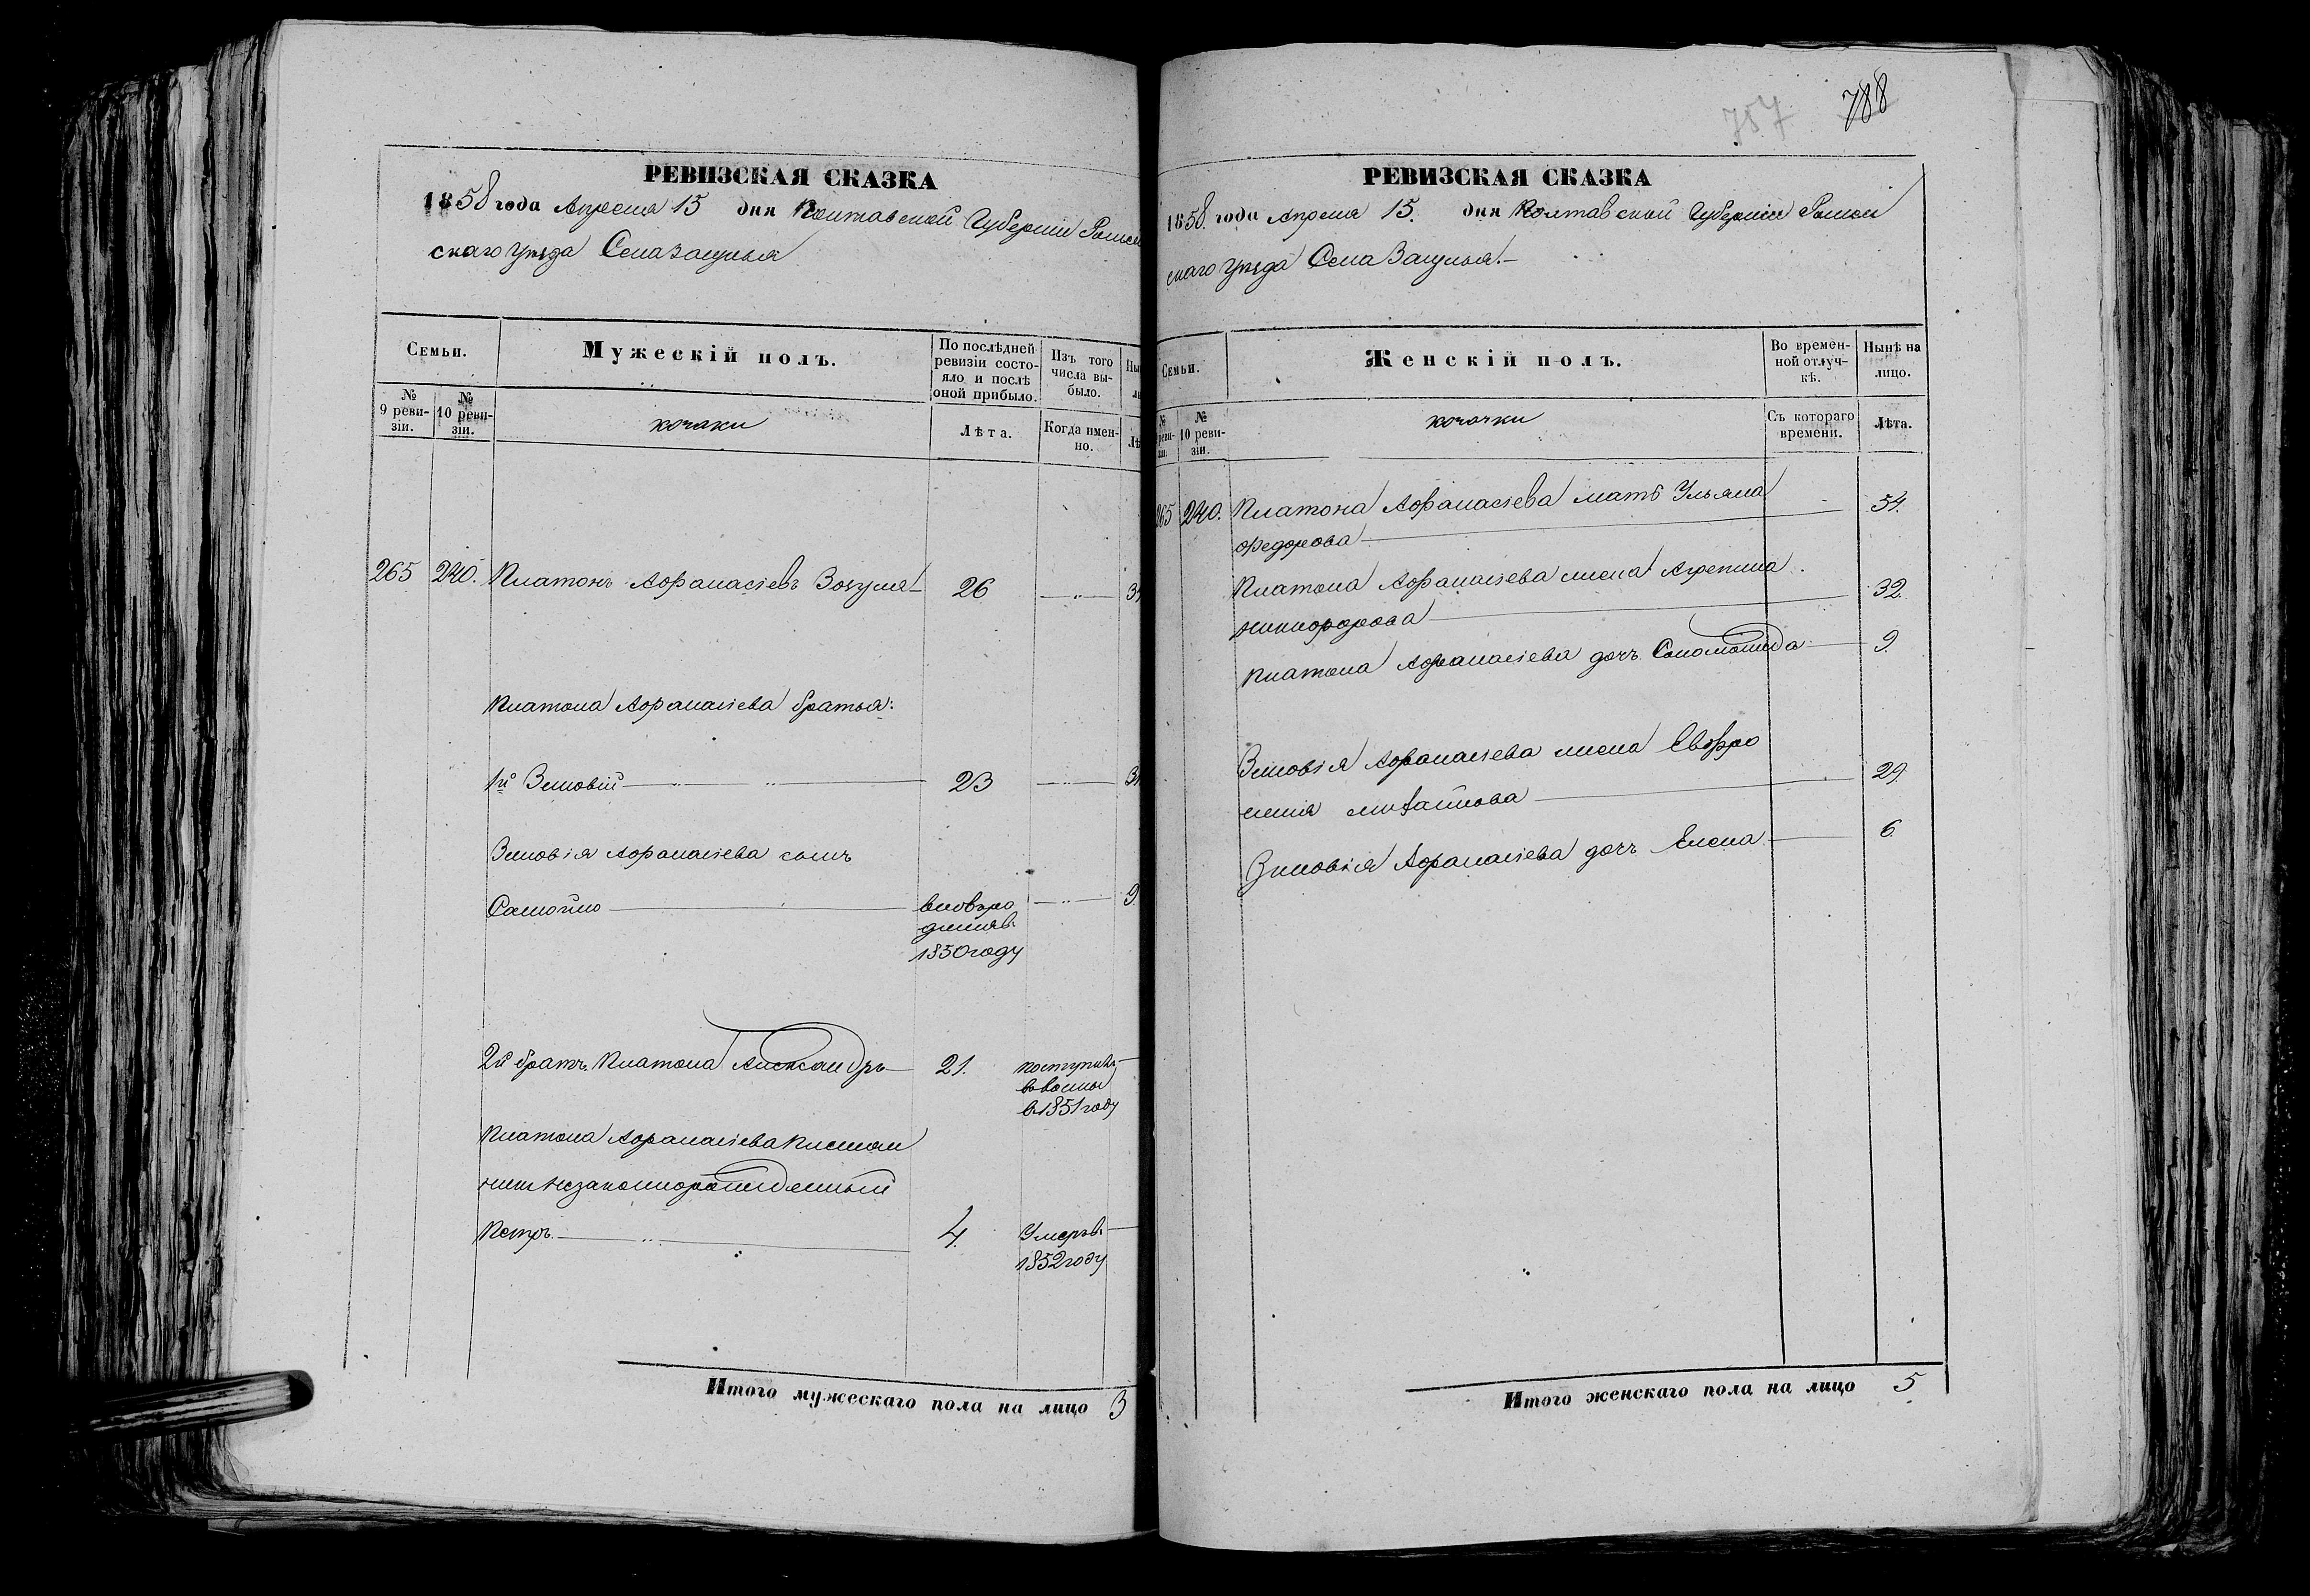 РЕВИЗСКАЯ СКАЗКА
1858 года Апреля 15 дня Полтавской Губернии Ромен
скаго уезда Села Зацулья
Семьи.
Мужескій полъ.
По послѣдней ревизіи состояло и послѣ оной прибыло.
Изъ того числа выбыло.
№ 9 ревизіи.
№ 10 ревизіи.
козаки
Лѣта.
Когда именно.
265 240. Платонъ Афанасіевъ Зозуля 26
Платона Афанасіева братья:
1й Зиновій 23
Зиновія Афанасіева сынъ
Самойло вновьро
дился в
1850 году 9
2й братъ Платона Александръ 21. поступилъ
в 1851 году
Платона Афанасіева племян
никъ незаконнорожденный
Петръ 4. Умеръ в
1852 году
Итого мужескаго пола на лицо 3
757 788
РЕВИЗСКАЯ СКАЗКА
1858. года Апреля 15. дня Полтавской Губерніи Ромен
скаго уезда Села Зацулья.
Семьи.
Женскій полъ.
Во временной отлучкѣ.
Нынѣ на лицо.
№ 10 ревизіи.
козачки
Съ котораго времени.
Лѣта.
265 240. Платона Афанасіева мать Ульяна
Федорова 54.
Платона Афанасіева жена Агрепина
Никифорова 32.
Платона Афанасіева дочь Соломонида 9.
Зиновія Афанасіева жена Евфро
синия Михайлова 29.
Зиновія Афанасіева дочь Елена 6
Итого женскаго пола на лицо 5